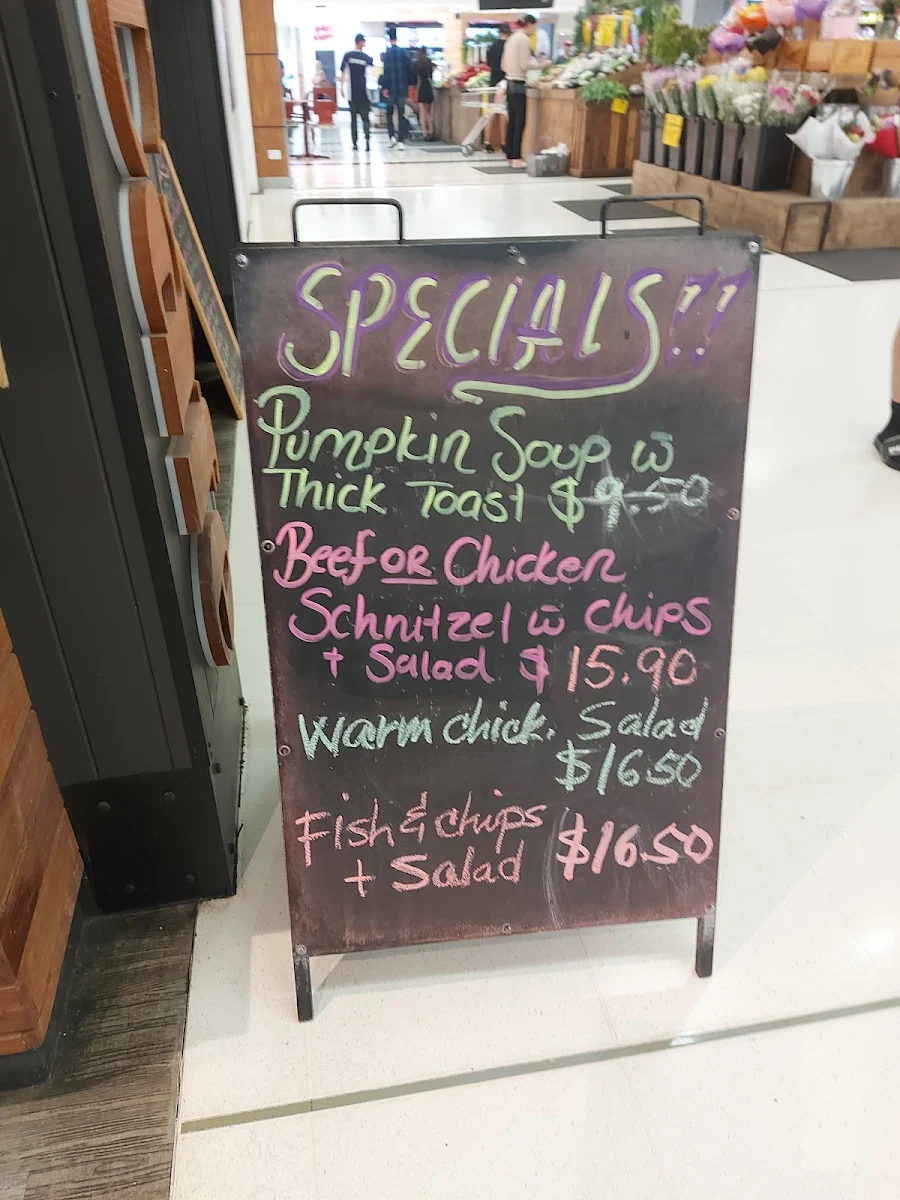 SPECIALS!!
Pumpkin Soup w̄
Thick Toast $9.50
Beef OR Chicken
Schnitzel w̄ Chips
+ Salad $15.90
Warm chick. Salad
$16.50
Fish & chips
+ Salad $16.50